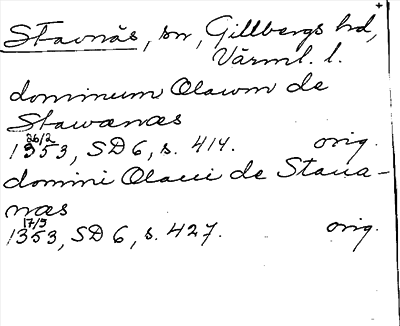 Stavnäs, sn, Gillbergs hd,
Värml. l.
dominum Olawm de
Stawanæs
26/2
1353, SD 6, s. 414. orig.
domini Olaui de Staua-
næs
17/3
1353, SD 6, s. 427. orig.